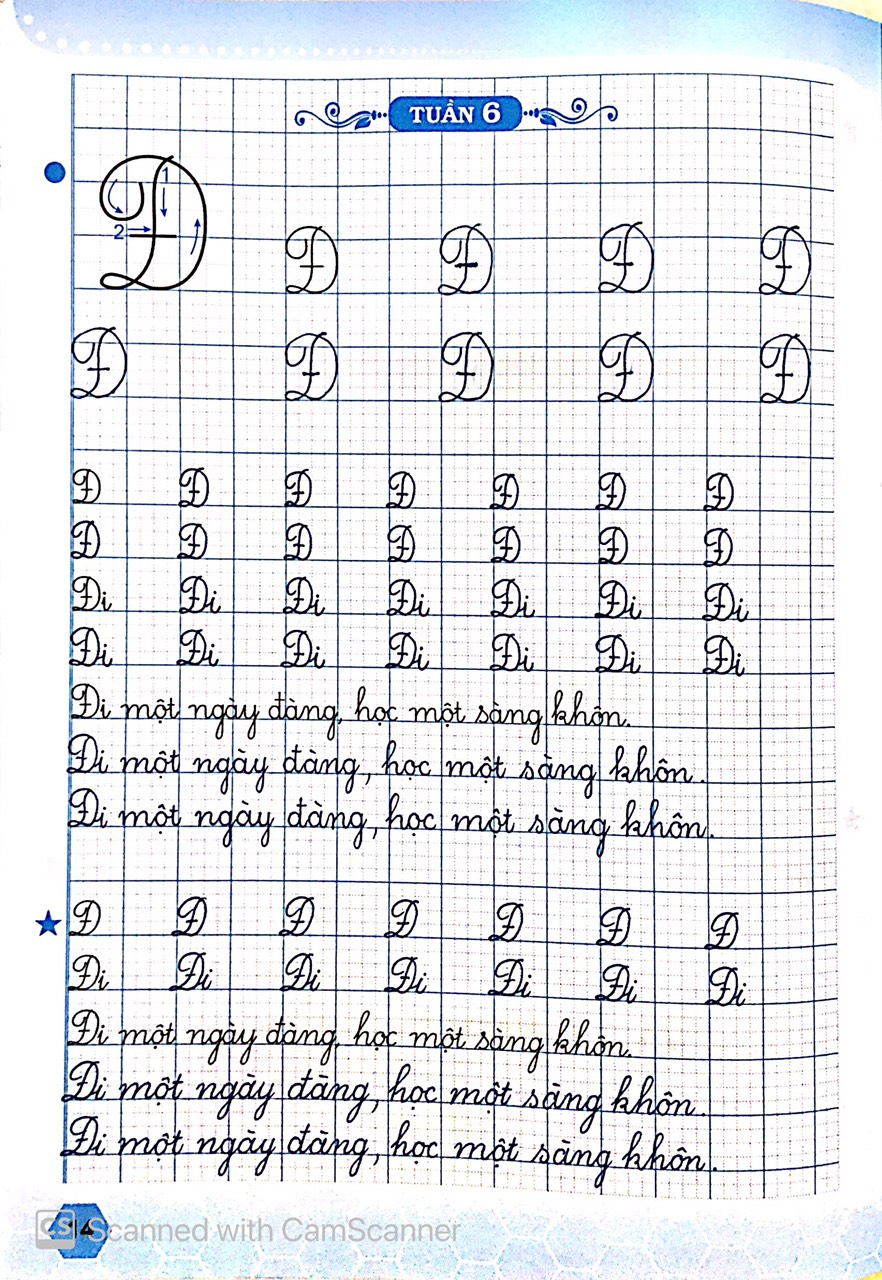 TUẦN 6
1
2
Đ Đ Đ Đ
Đ Đ Đ Đ Đ
Đ Đ Đ Đ Đ Đ Đ
Đ Đ Đ Đ Đ Đ Đ
Đi Đi Đi Đi Đi Đi Đi
Đi Đi Đi Đi Đi Đi Đi
Đi một ngày đàng, học một sàng khôn.
Đi một ngày đàng, học một sàng khôn.
Đi một ngày đàng, học một sàng khôn.
Đ Đ Đ Đ Đ Đ Đ
Đi Đi Đi Đi Đi Đi Đi
Đi một ngày đàng, học một sàng khôn.
Đi một ngày đàng, học một sàng khôn.
Đi một ngày đàng, học một sàng khôn.
14
CS Scanned with CamScanner